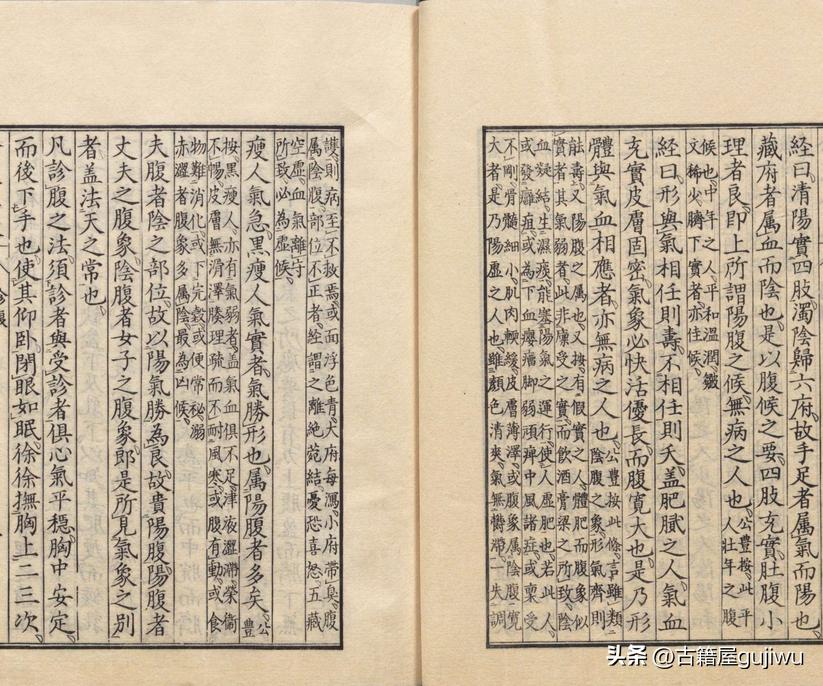 經曰清陽實四肢濁陰歸六府故手足者属氣而陽也
藏府者属血而陰也是以腹候之要四肢充實肚腹小
理者良即上所謂陽腹之候無病之人也公豊按此平人壯年之腹
候也中年之人平和溫潤皺
文稀少臍下實者亦佳候
經曰形與氣相任則壽不相任則夭蓋肥膩之人氣血
充實皮膚固密氣象必快活優長而腹寛大也是乃形
體與氣血相應者亦無病之人也公豊按此條言雖類陰腹之象形氣齊則
能壽又陽腹之属也又按有假實之人體肥而腹象似
實者其氣弱者此非康受之實而飲酒膏粱之所致陰
血凝結生濕痰能塞陽氣之運行使人虛肥也若此人
或發癰疽或為下血癭瘤脚弱頑痺中風諸症或稟受
不剛骨髓細小肌肉軟緩皮膚薄澤或腹象属陰腹寛
大者是乃陽虛之人也雖顏色清爽氣無欝滯一失調
護則病至不救焉或面浮色青大府每瀉小府帶臭腹
属陰腹部位不正者經謂之離絶菀結憂恐喜怒五藏
空虛血氣離守
所致必為虛候
瘦人氣急黒瘦人氣實者氣勝形也属陽腹者多矣公豊
按黒瘦人亦有氣弱者蓋氣血俱不足津液澀滯榮衞
不暢皮膚無滑澤腠理疏而不耐風寒或腹有動或食
物難消化或下完穀或便常秘溺
赤澀者腹象多属陰最為凶候
夫腹者陰之部位故以陽氣勝為良故貴陽腹陽腹者
丈夫之腹象陰腹者女子之腹象郎是所見氣象之別
者蓋法天之常也
凡診腹之法須診者與受診者俱心氣平穩胸中安定
而後下手也使其仰卧閉眼如眠徐徐撫胸上二三次
头条 @古籍屋gujiwu